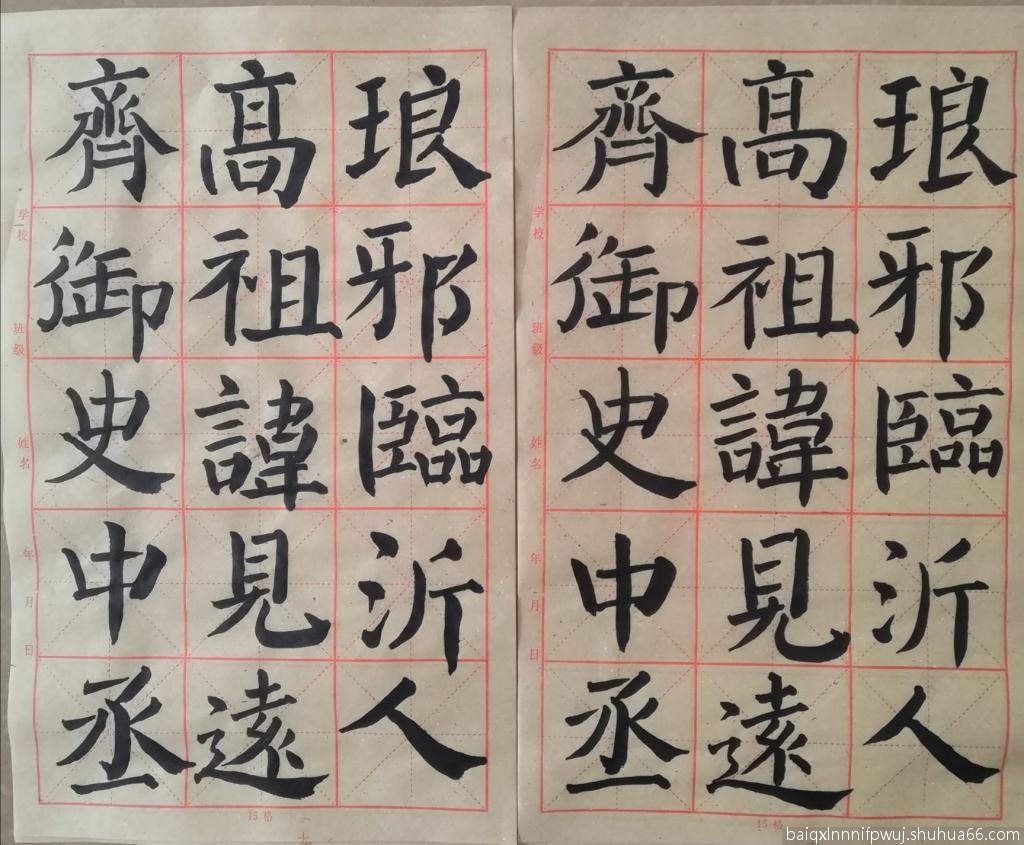 琅邪臨沂人
高祖諱見遠
齊御史中丞
琅邪臨沂人
高祖諱見遠
齊御史中丞
学校
班级
姓名
年月日
15格
学校
班级
姓名
年月日
15格
baiqxlnnnifpwuj.shuhua66.com